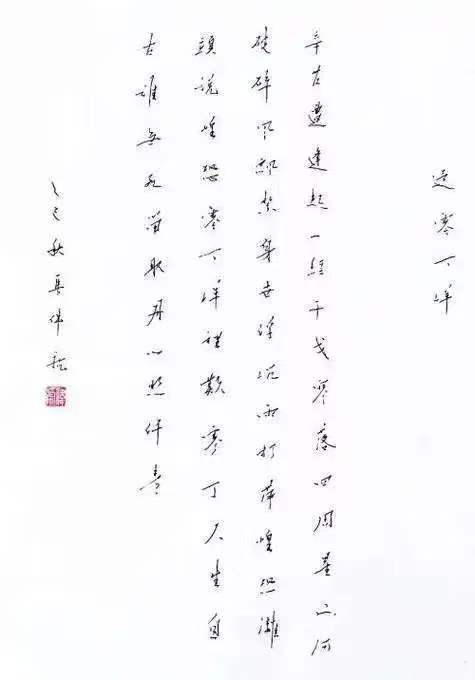 過零丁洋
辛苦遭逢起一經干戈寥落四周星山河
破碎風飄絮身世浮沉雨打萍惶恐灘
頭說惶恐零丁洋裡歎零丁人生自
古誰無死留取丹心照汗青
乙巳秋